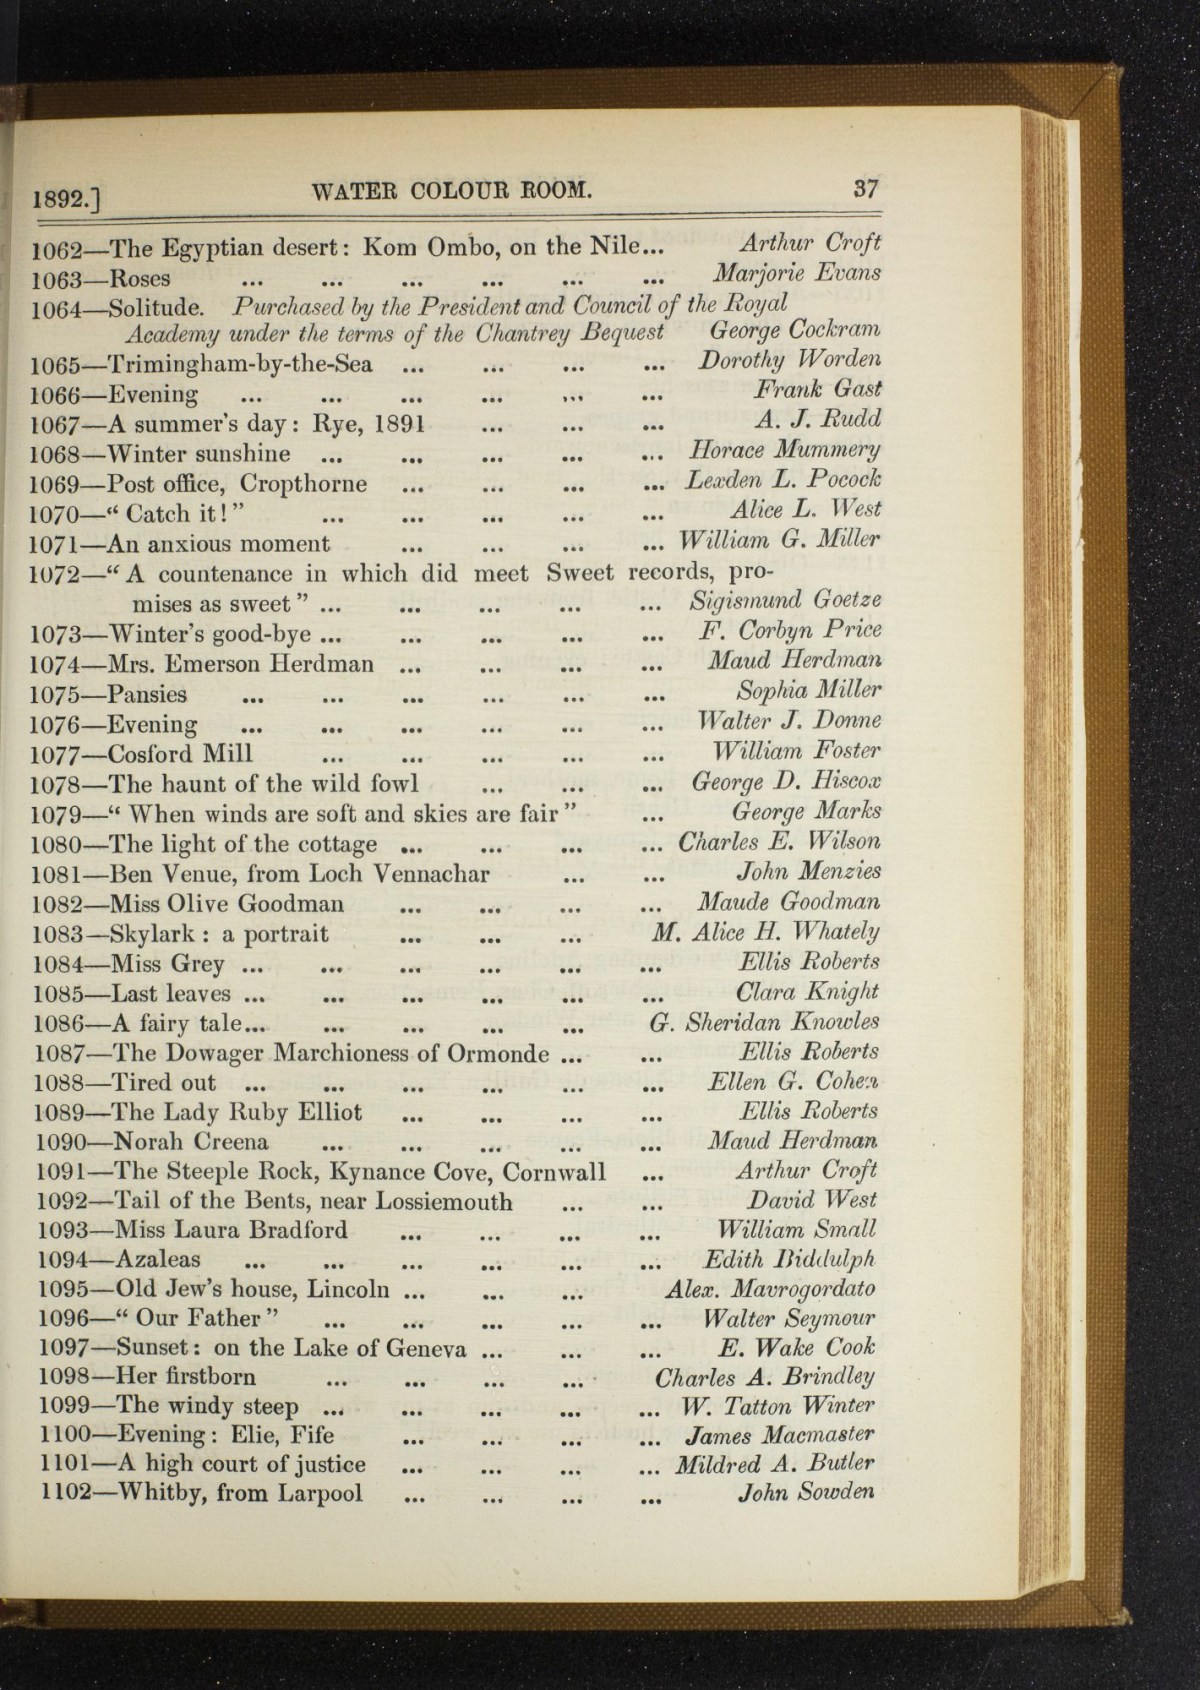 1892.] WATER COLOUR ROOM. 37
1062—The Egyptian desert: Kom Ombo, on the Nile... Arthur Croft
1063—Roses ... ... ... ... ... ... Marjorie Evans
1064—Solitude. Purchased by the President and Council of the Royal
Academy under the terms of the Chantrey Bequest George Cockram
1065—Trimingham-by-the-Sea ... ... ... ... Dorothy Worden
1066—Evening ... ... ... ... ... ... Frank Gast
1067—A summer's day: Rye, 1891 ... ... ... A. J. Rudd
1068—Winter sunshine ... ... ... ... ... Horace Mummery
1069—Post office, Cropthorne ... ... ... ... Lexden L. Pocock
1070—“Catch it!” ... ... ... ... ... Alice L. West
1071—An anxious moment ... ... ... ... William G. Miller
1072—“A countenance in which did meet Sweet records, pro-
mises as sweet” ... ... ... ... ... Sigismund Goetze
1073—Winter's good-bye ... ... ... ... ... F. Corbyn Price
1074—Mrs. Emerson Herdman ... ... ... ... Maud Herdman
1075—Pansies ... ... ... ... ... ... Sophia Miller
1076—Evening ... ... ... ... ... ... Walter J. Donne
1077—Cosford Mill ... ... ... ... ... William Foster
1078—The haunt of the wild fowl ... ... ... George D. Hiscox
1079—“When winds are soft and skies are fair” ... George Marks
1080—The light of the cottage ... ... ... ... Charles E. Wilson
1081—Ben Venue, from Loch Vennachar ... ... John Menzies
1082—Miss Olive Goodman ... ... ... ... Maude Goodman
1083—Skylark: a portrait ... ... ... M. Alice H. Whately
1084—Miss Grey ... ... ... ... ... ... Ellis Roberts
1085—Last leaves ... ... ... ... ... ... Clara Knight
1086—A fairy tale... ... ... ... ... G. Sheridan Knowles
1087—The Dowager Marchioness of Ormonde ... ... Ellis Roberts
1088—Tired out ... ... ... ... ... ... Ellen G. Cohen
1089—The Lady Ruby Elliot ... ... ... ... Ellis Roberts
1090—Norah Creena ... ... ... ... ... Maud Herdman
1091—The Steeple Rock, Kynance Cove, Cornwall ... Arthur Croft
1092—Tail of the Bents, near Lossiemouth ... ... David West
1093—Miss Laura Bradford ... ... ... ... William Small
1094—Azaleas ... ... ... ... ... ... Edith Biddulph
1095—Old Jew's house, Lincoln ... ... ... Alex. Mavrogordato
1096—“Our Father” ... ... ... ... ... Walter Seymour
1097—Sunset: on the Lake of Geneva ... ... ... E. Wake Cook
1098—Her firstborn ... ... ... ... Charles A. Brindley
1099—The windy steep ... ... ... ... ... W. Tatton Winter
1100—Evening: Elie, Fife ... ... ... ... James Macmaster
1101—A high court of justice ... ... ... ... Mildred A. Butler
1102—Whitby, from Larpool ... ... ... ... John Sowden